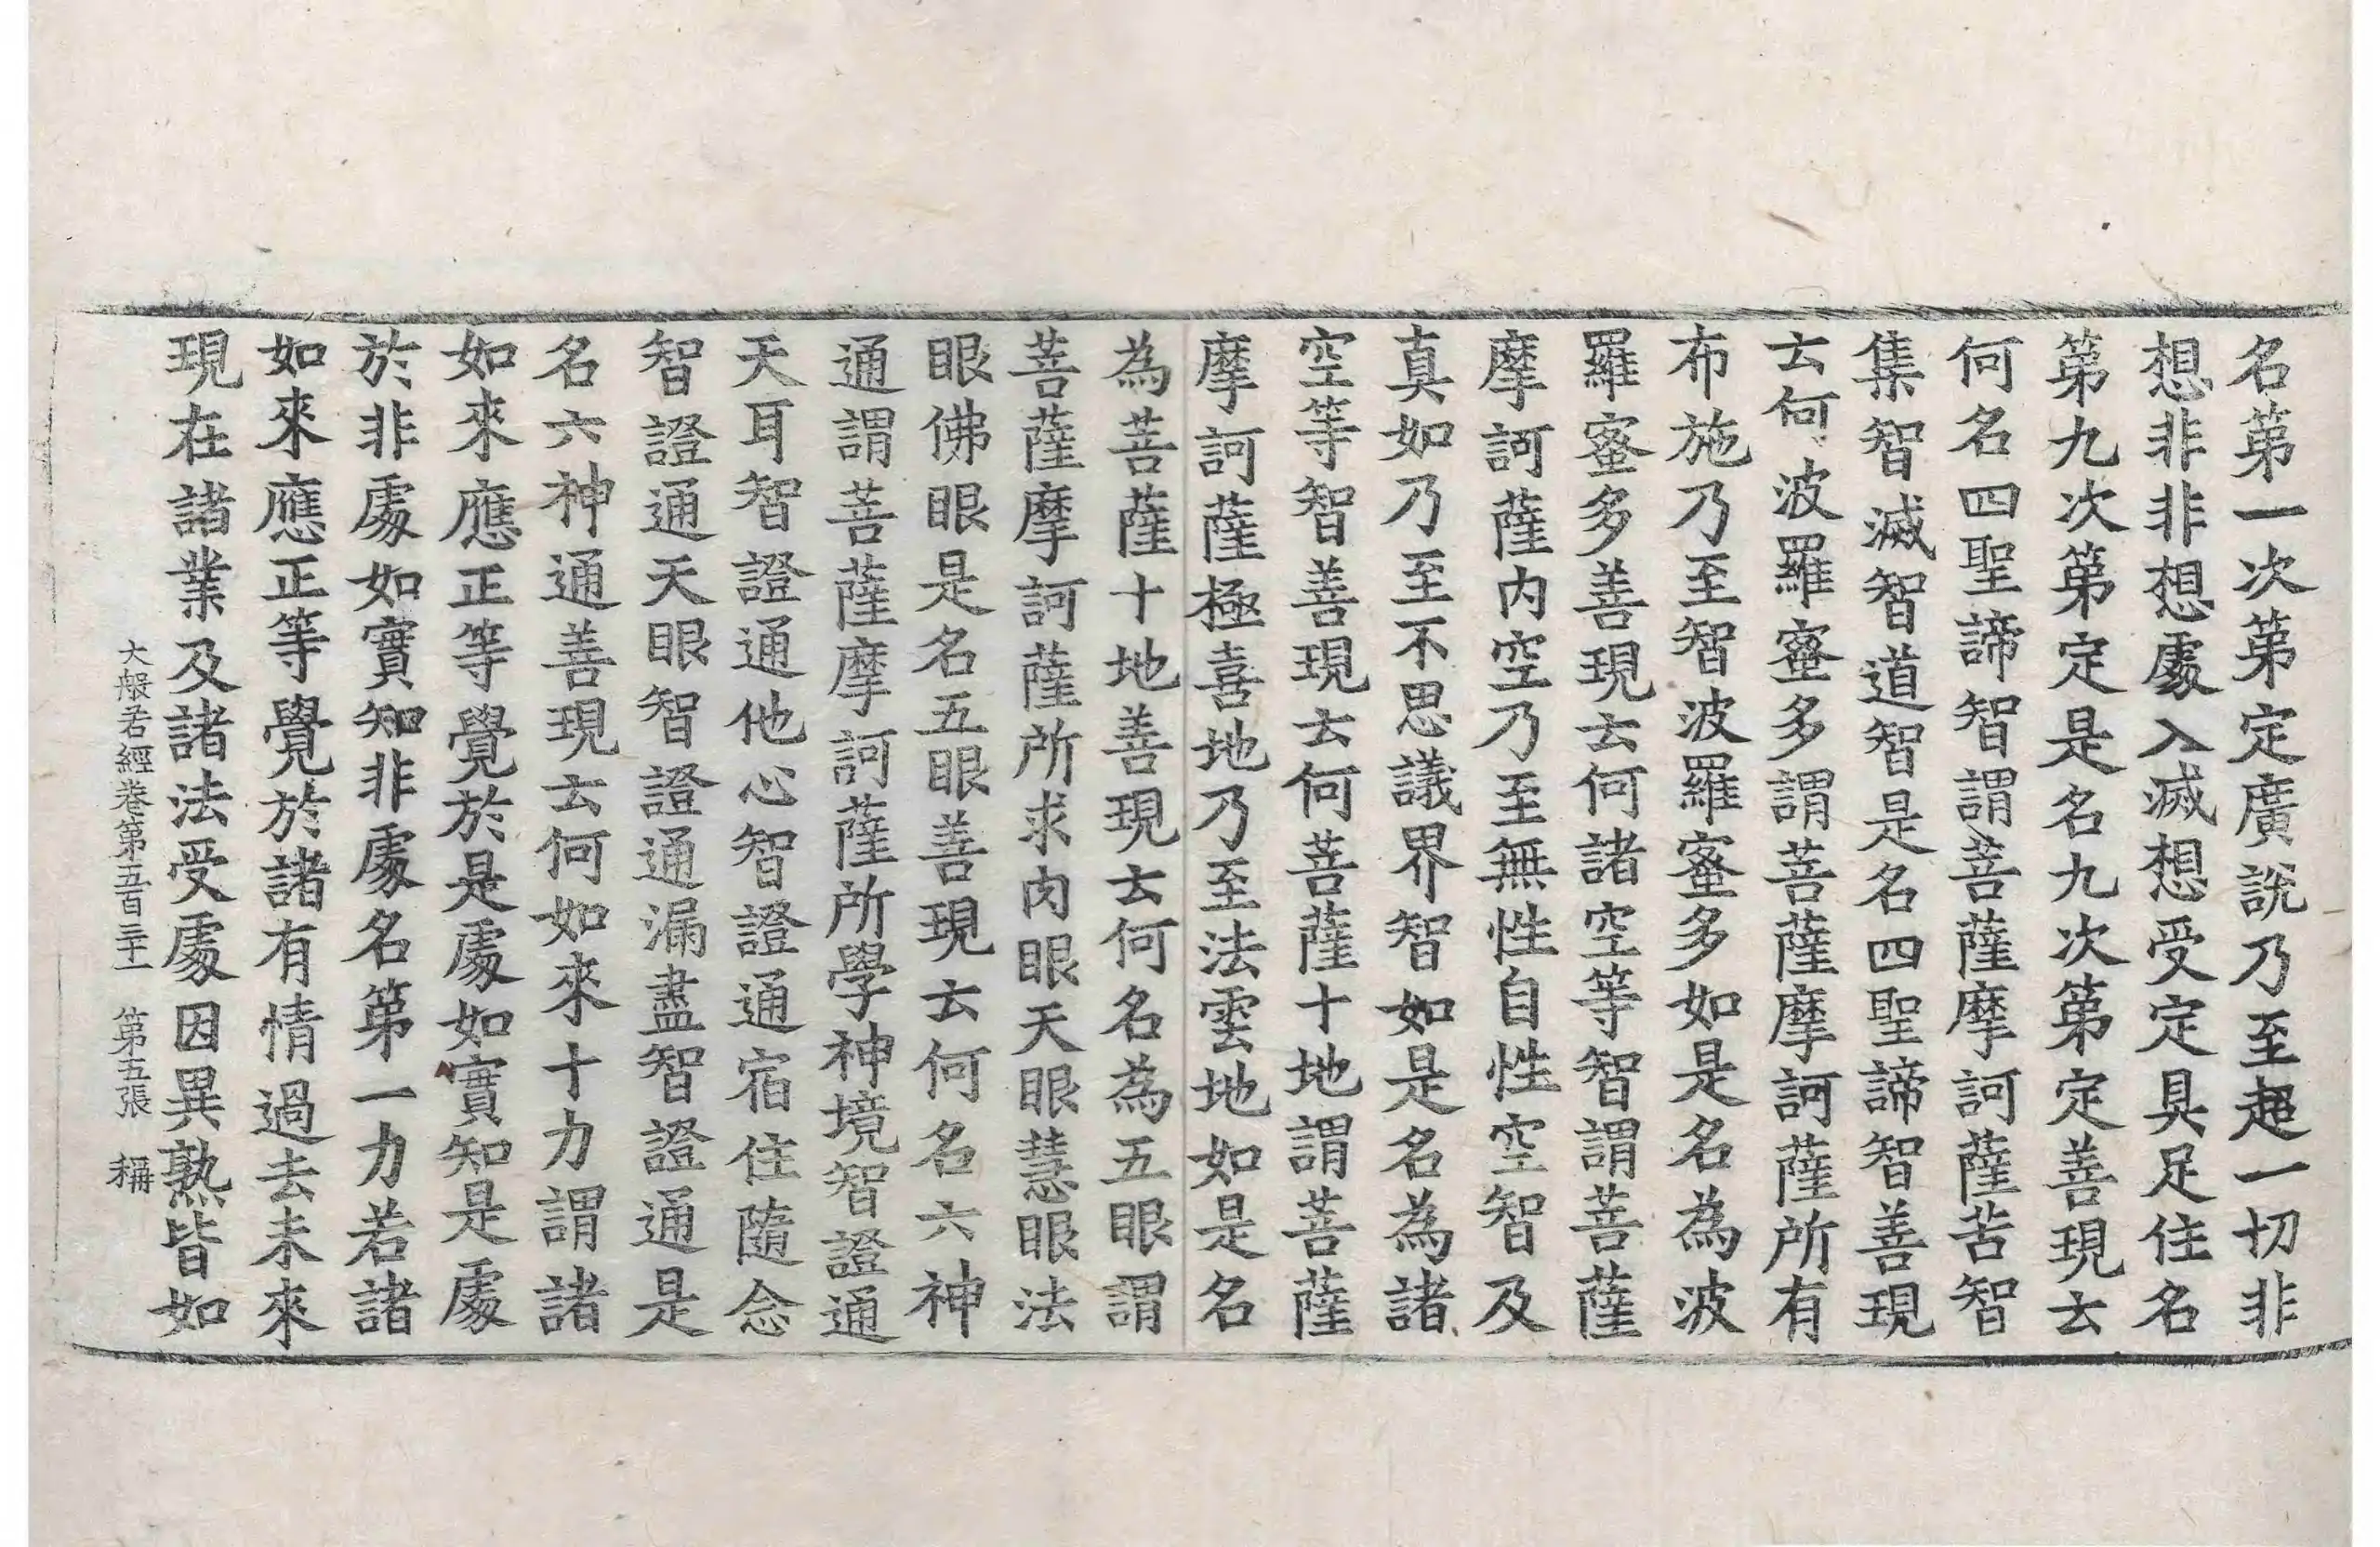 名第一次第定廣說乃至超一切非
想非非想處入滅想受定具足住名
第九次第定是名九次第定善現云
何名四聖諦智謂菩薩摩訶薩苦智
集智滅智道智是名四聖諦智善現
云何波羅蜜多謂菩薩摩訶薩所有
布施乃至智波羅蜜多如是名為波
羅蜜多善現云何諸空等智謂菩薩
摩訶薩內空乃至無性自性空智及
真如乃至不思議界智如是名為諸
空等智善現云何菩薩十地謂菩薩
摩訶薩極喜地乃至法雲地如是名
為菩薩十地善現云何名為五眼謂
菩薩摩訶薩所求肉眼天眼慧眼法
眼佛眼是名五眼善現云何名六神
通謂菩薩摩訶薩所學神境智證通
天耳智證通他心智證通宿住隨念
智證通天眼智證通漏盡智證通是
名六神通善現云何如來十力謂諸
如來應正等覺於是處如實知是處
於非處如實知非處名第一力若諸
如來應正等覺於諸有情過去未來
現在諸業及諸法受處因異熟皆如
大般若經卷第五百三十一 第五張 稱